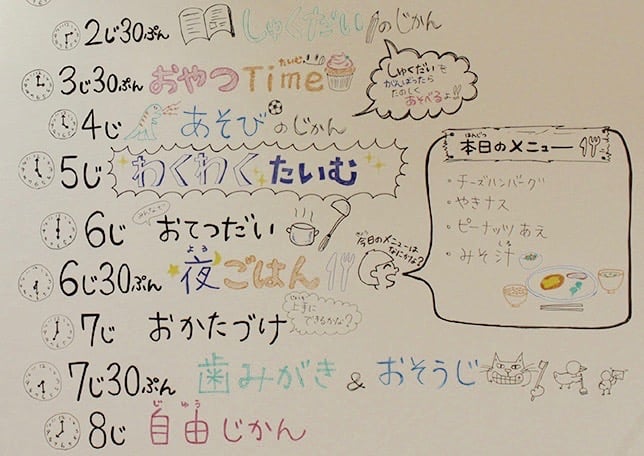 2じ30ぷん しゅくだいのじかん
3じ30ぷん おやつTime
たいむ!!
しゅくだいも
がんばったら
たのしく
あそべるよ!!
4じ あそびのじかん
5じ わくわくたいむ
6じ おてつだい
6じ30ぷん 夜ごはん
よる
今日のメニューは
なにかな?
7じ おかたづけ
上手に
できるかな?
7じ30ぷん 歯みがき & おそうじ
8じ 自由じかん
じゆう
本日のメニュー
ほんじつ
・チーズハンバーグ
・やきナス
・ピーナッツあえ
・みそ汁
しる